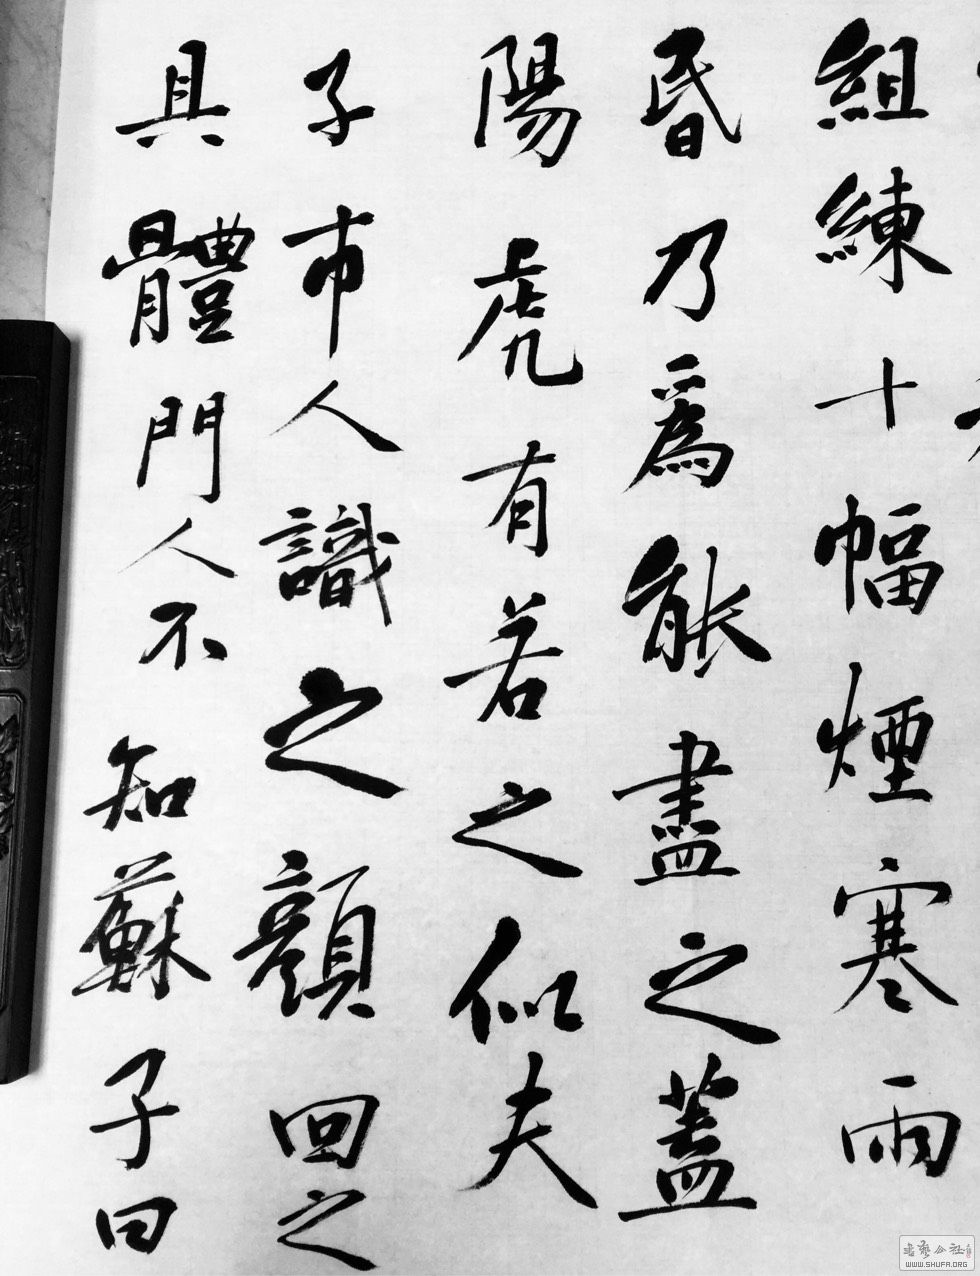 組練十幅煙寒雨
昏乃爲能盡之蓋
陽虎有若之似夫
子市人識之顏回之
具體門人不知蘇子曰
WWW.SHUFA.ORG